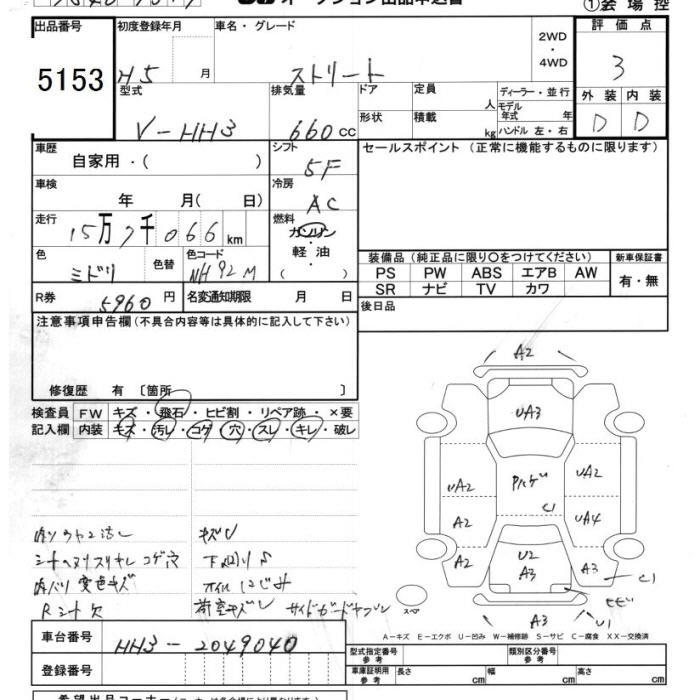 オークション出品申込書
①会場控
出品番号 初度登録年月 車名・グレード 評価点
5153 H5 月 ストリート 2WD ・ 4WD 3
型式 V-HH3 排気量 660 cc ドア 定員 人 ディーラー・並行
形状 積載 kg モデル年式 年 ハンドル 左・右
外装 内装
D D
車歴 自家用・( ) シフト 5F
セールスポイント (正常に機能するものに限ります)
車検 年 月(日) 冷房 AC
走行 15万7千066km 燃料 ガソリン・軽油・( )
色 ミドリ 色替 色コード NH92M
装備品 (純正品に限り○をつけてください) 新車保証書
PS PW ABS エアB AW 有・無
SR ナビ TV カワ
R券 5960円 名変通知期限 月 日
後日品
注意事項申告欄 (不具合内容等は具体的に記入して下さい)
修復歴 有 〔箇所 〕
検査員 FW キズ・飛石・ヒビ割・リペア跡・×要
記入欄 内装 キズ・汚レ・コゲ・穴・スレ・キレ・破レ
A2
UA3
UA2 Pハゲ UA2
C1
A2 UA4
A2 U2 A3 A3
C1
ヒビ
A3 U1
スペア
キズU
シートヘタリスリキレコゲ穴
内バリ変色キズ オイルにじみ
Rシート欠 荷室キズU サイドガードケズレ
A-キズ E-エクボ U-凹み W-補修跡 S-サビ C-腐食 XX-交換済
車台番号 HH3-2049040
型式指定番号 参考 類別区分番号 参考
登録番号
車庫証明用 参考 長さ cm 幅 cm 高さ cm
希望出品コーナー